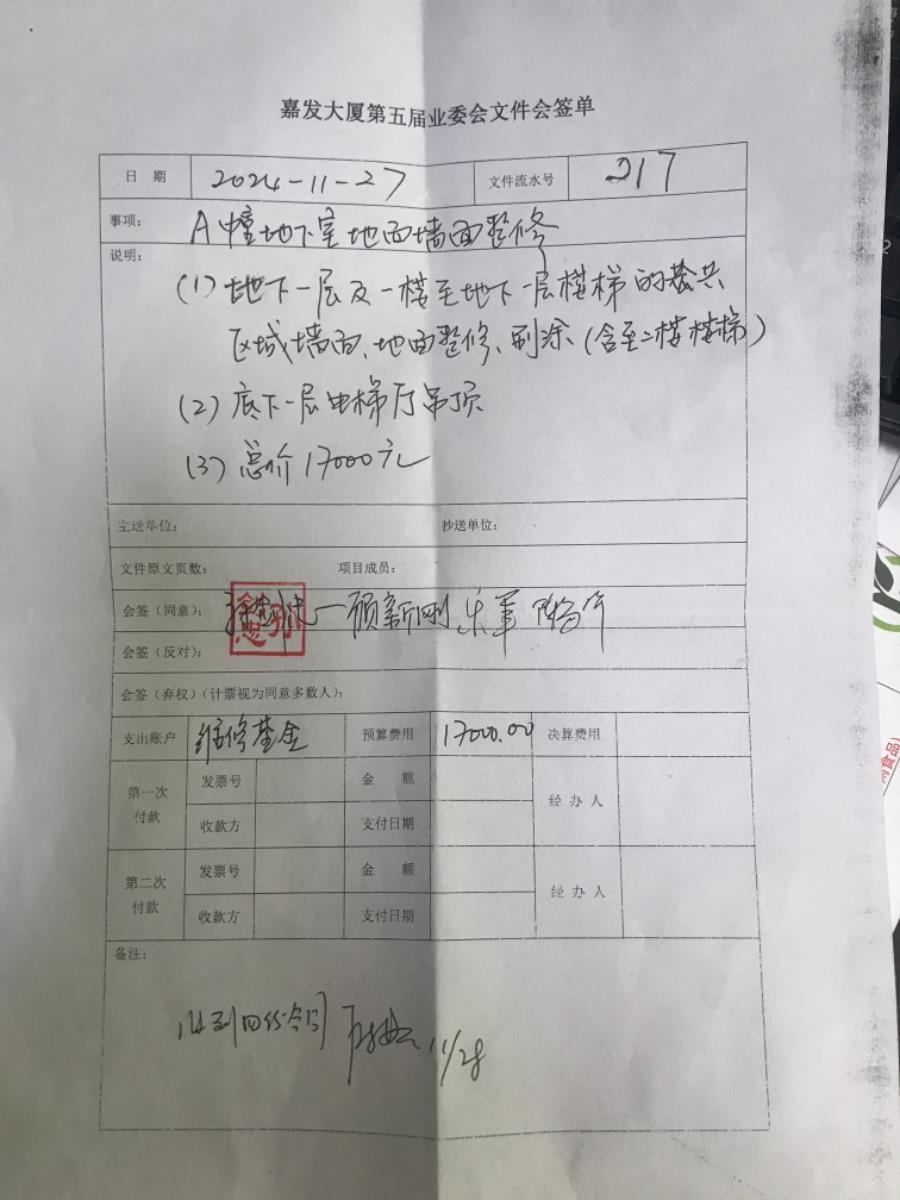 嘉发大厦第五届业委会文件会签单
日 期 2024-11-27 文件流水号 217
事项: A幢地下室地面墙面整修
说明:
(1) 地下一层及一楼至地下一层楼梯的公共
区域墙面、地面整修、刷涂(含至二楼楼梯)
(2) 底下一层电梯厅吊顶
(3) 总价17000元
主送单位: 抄送单位:
文件原文页数: 项目成员:
会签(同意): 顾新刚
会签(反对):
会签(弃权)(计票视为同意多数人):
支出账户 维修基金 预算费用 17000.00 决算费用
第一次付款 发票号 金 额 经 办 人
收款方 支付日期
第二次付款 发票号 金 额 经 办 人
收款方 支付日期
备注:
收到四份合同 11/28
食品